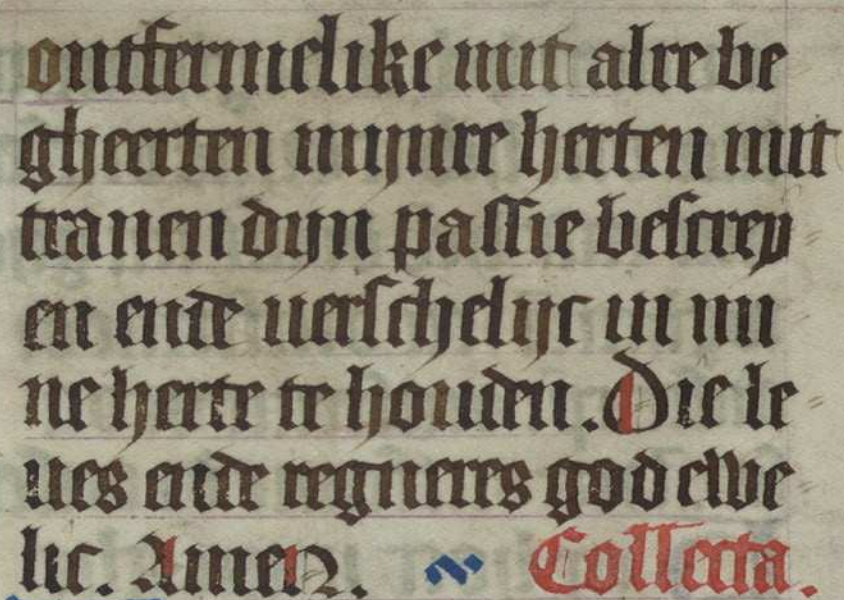 ontfermelike mit alre be
gheerten mijnre herten mit
tranen dijn passie bescrey
en ende verschelijc in mi
ne herte te houden. Die le
ues ende regneres god ewe
lic. Amen. Collecta.